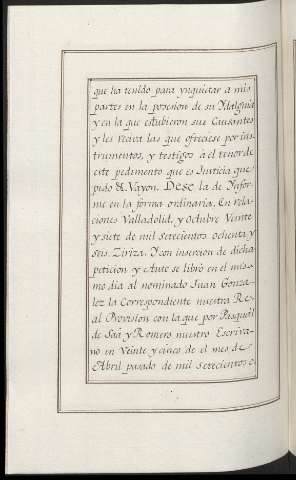 que ha tenido para ynquietar a mis
partes en la posesion de su Hidalguia
y en la que estubieron sus Causantes
y les reciva las que ofreciese por ins-
trumentos, y testigos à el tenor de
este pedimento que es Justicia que
pido &. Vayon. Dese la de Ynfor-
me en la forma ordinaria. En rela-
ciones Valladolid, y Octubre Veinte
y siete de mil setecientos ochenta y
seis. Ziriza. Y con insercion de dicha
peticion y Auto se libró en el mis-
mo dia al nominado Juan Gonza-
lez la Correspondiente nuestra Re-
al Provision con la que por Pasqual
de Saa y Romero nuestro Escriva-
no en Veinte y cinco de el mes de
Abril pasado de mil setecientos o